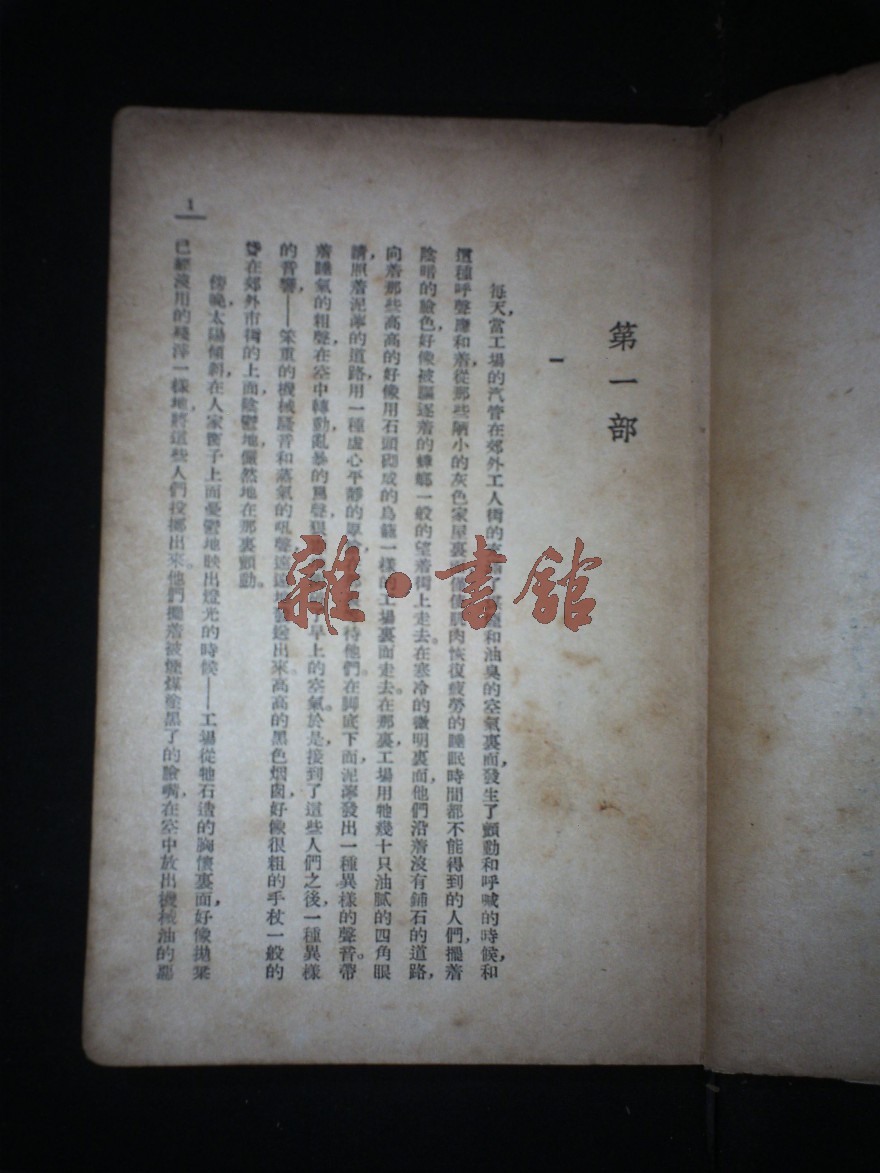 第一部
一
每天,當工場的汽管在郊外工人街的和油臭的空氣裏面,發生了顫動和呼喊的時候,和
這種呼聲應和着,從那些陋小的灰色家屋裏肉恢復疲勞的睡眠時間都不能得到的人們,擺着
陰暗的臉色,好像被驅逐着的蟑螂一般的望着街上走去。在寒冷的微明裏面,他們沿着沒有鋪石的道路,
向着那些高高的好像用石頭砌成的鳥籠一樣的工場裏面走去。在那裏,工場用牠幾十只油膩的四角眼
睛,照着泥濘的道路,用一種虛心平靜的待他們。在脚底下面,泥濘發出一種異樣的聲音。帶
着睡氣的粗聲在空中轉動,亂暴的罵聲,早上的空氣。於是,接到了這些人們之後,一種異樣
的音響——笨重的機械騷音和蒸氣的吼聲,送出來。高高的黑色烟囱,好像很粗的手杖一般的
聳在郊外市街的上面,陰鬱地儼然地在那裏顫動。
傍晚,太陽傾斜,在人家窗子上面憂鬱地映出燈光的時候——工場從牠石造的胸懷裏面,好像拋棄
已經沒用的殘滓一樣地,將這些人們投擲出來。他們擺着被煙煤塗黑了的臉嘴,在空中放出機械油的
1
雜·書館